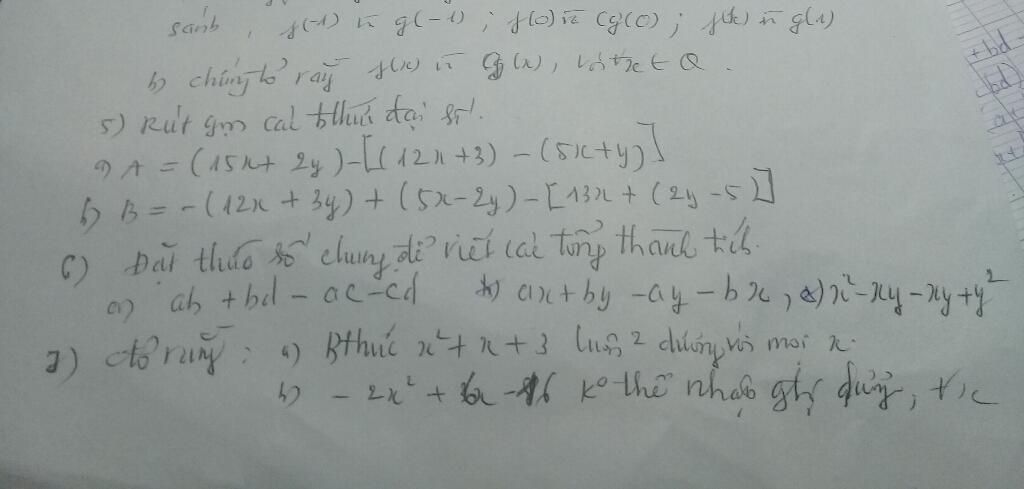 sánh, f(-1) và g(-1); f(0) và g(0); f(1) và g(1)
b) chứng tỏ rằng f(x) và g(x), với ∀x ∈ Q.
5) Rút gọn các bthức đại số.
a) A = (15x + 2y) - [(12x + 3) - (5x + y)]
b) B = -(12x + 3y) + (5x - 2y) - [13x + (2y - 5)]
6) Đặt thừa số chung để viết các tổng thành tích.
a) ab + bd - ac - cd b) ax + by - ay - bx, c) x² - xy - xy + y²
7) Ctỏ rằng: a) Bthức x² + x + 3 luôn 2 dương với mọi x.
b) - 2x² + 6x - 16 k° thể nhận gtrị dương, ∀x
+bd